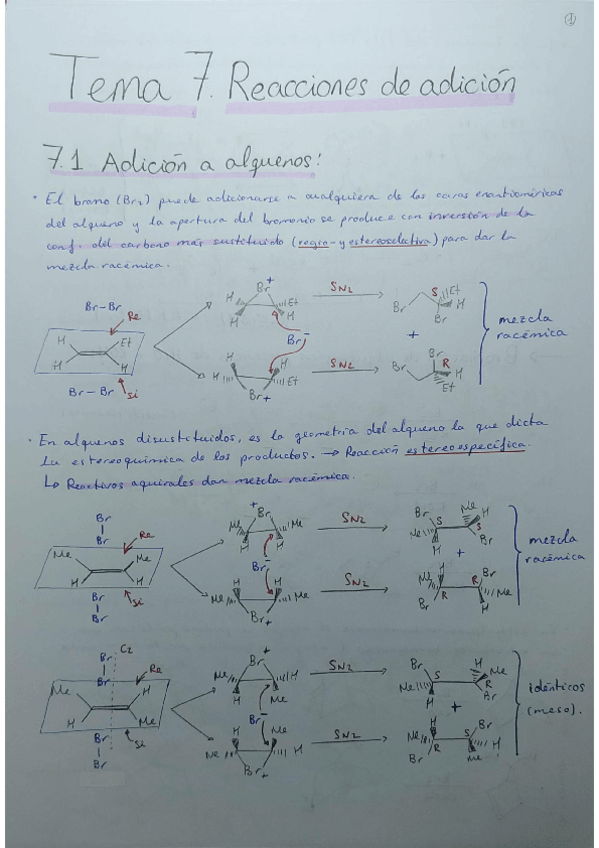 1
Tema 7. Reacciones de adición
7.1 Adición a alquenos:
· El bromo (Br₂) puede adicionarse a cualquiera de las caras enantioméricas
del alqueno y la apertura del bromonio se produce con inversión de la
conf. del carbono más sustituido (regio- y estereoselectiva) para dar la
mezcla racémica.
Br-Br Re
H Et
H H
Br-Br Si
Br +
H H Et H
SN2
Br S Br H Et
Br⁻
+
H H H Et
Br+
SN2
Br Br R H Et
mezcla
racémica
· En alquenos disustituidos, es la geometría del alqueno la que dicta
la estereoquímica de los productos. → Reacción estereoespecífica.
↳ Reactivos aquirales dan mezcla racémica.
Br-Br Re
Me Me
H H
Br-Br Si
+ Br
Me Me H H
SN2
Br Me H S Me H S Br
Br⁻
+
Me Me H H
Br+
SN2
Me H Br R R Br Me H
mezcla
racémica
Br-Br C2 Re
Me H
H Me
Br-Br Si
Br +
Me H H Me
SN2
Br Me H S H Me R Br
Br⁻
+
Me H Me H
Br+
SN2
Me H Br R S Br H Me
idénticos
(meso).